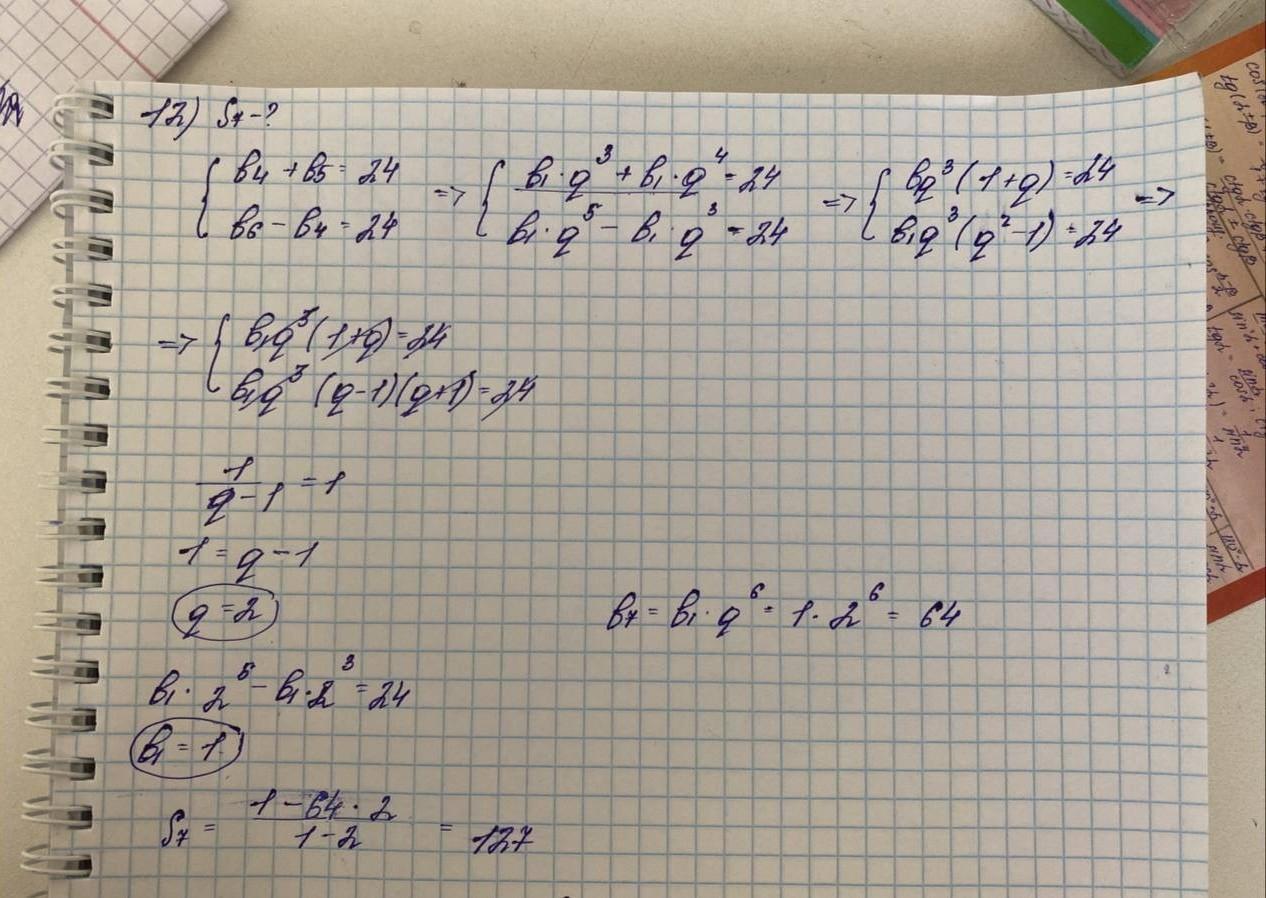 12) S₇ - ?
{ b₄ + b₅ = 24 => { b₁ · q³ + b₁ · q⁴ = 24 => { bq³ (1+q) = 24 =>
b₆ - b₄ = 24 b₁ · q⁵ - b₁ · q³ = 24 b₁q³ (q² - 1) = 24
=> { b₁q³ (1+q) = 24
b₁q³ (q-1)(q+1) = 24
1/(q - 1) = 1
1 = q - 1
q = 2
b₇ = b₁ · q⁶ = 1 · 2⁶ = 64
b₁ · 2⁵ - b₁ · 2³ = 24
b₁ = 1
S₇ = (1 - 64 · 2)/(1 - 2) = 127